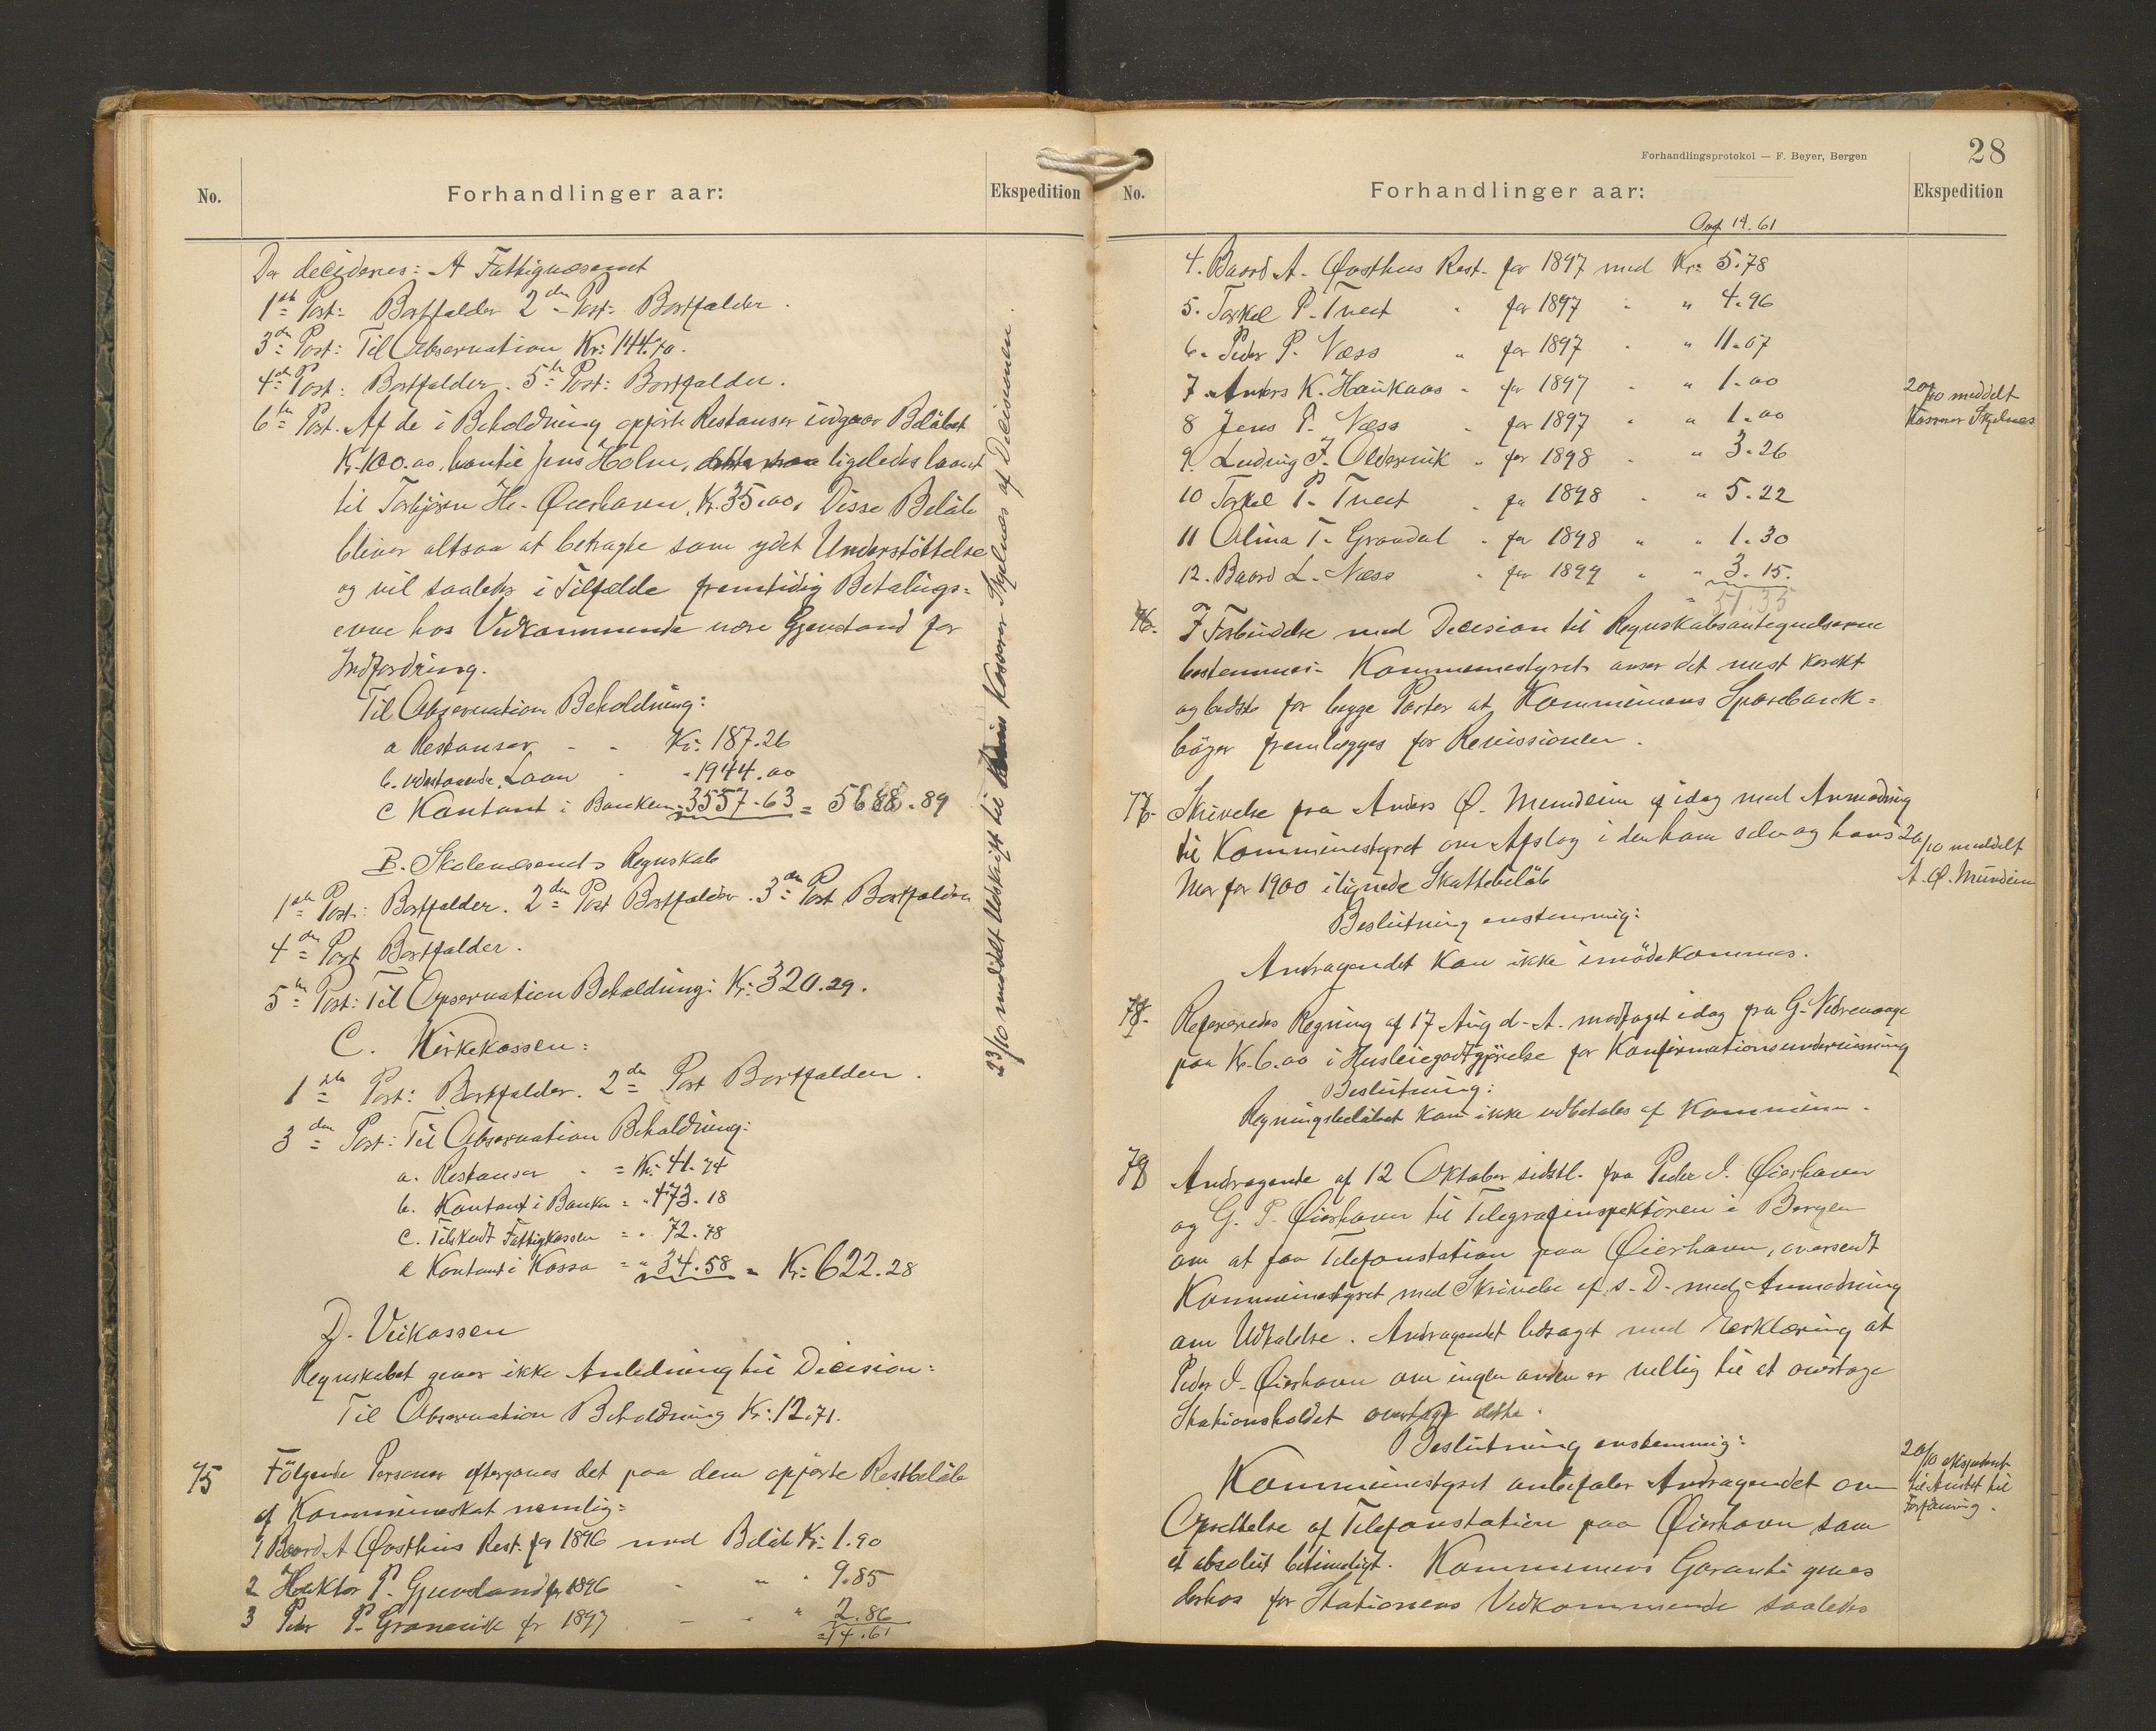 No.
Forhandlinger aar:
Ekspedition
Da decideres: A Fattigvæsenet
1ste Post: Bortfalder 2den Post: Bortfalder.
3den Post: Til Observation Kr: 144.70.
4de Post: Bortfalder. 5te Post: Bortfalder.
6te Post. Af de i Beholdning opførte Restanser indgaar Beløbet
Kr. 100.00, hantie Jens Holm, ligeledes laant
til Torbjørn He. Øierhavn, Kr. 35.00. Disse Beløb
bliver altsaa at betragte som ydet Understøttelse
og vil saaledes i Tilfælde fremtidig Betalings-
evne hos Vedkommende være Gjenstand for
Indfordring.
Til Observation Beholdning:
a Restanser - - Kr: 187.26
b. udestaaende Laan - - 1944.00
c Kontant i Banken - 3557.63 = 5688.89
B. Skolevæsenets Regnskab
1ste Post: Bortfalder. 2den Post Bortfalder. 3den Post Bortfalder
4de Post Bortfalder.
5te Post: Til Observation Beholdning: Kr: 320.29.
C. Kirkekassen:
1ste Post: Bortfalder. 2den Post Bortfalder.
3den Post: Til Observation Beholdning:
a. Restanser - = Kr: 41.74
b. Kontant i Banken = " 473.18
c. Tilskudt Fattigkassen = " 72.78
d Kontant i Kassa = " 34.58 = Kr: 622.28
D. Veikassen
Regnskabet giver ikke Anledning til Decision:
Til Observation Beholdning Kr: 12.71.
75 Følgende Personer eftergives det paa dem opførte Restbeløb
af Kommuneskat nemlig:
1 Baard A Østhus Rest. for 1896 med Beløb Kr: 1.90
2 Hektor P. Gjuvsland for 1896 - " " 9.85
3 Peder P. Granevik for 1897 - - " 2.86
= 14.61
23/10 meddelt Udskrift til Kasserer Skjelnes af Decisionen.
Forhandlingsprotokol — F. Beyer, Bergen
28
No.
Forhandlinger aar:
Ekspedition
Ovf 14.61
4. Baard A. Østhus Rest. for 1897 med Kr: 5.78
5. Torkel P. Tveit " for 1897 - " 4.96
6. Peder P. Næss " for 1897 - " 11.07
7. Anders K. Haukaas " for 1897 - " 1.00
8 Jens P. Næss " for 1897 " " 1.00
9. Ludvig J. Oldervik " for 1898 - " 3.26
10 Torkel P. Tveit " for 1898 - " 5.22
11 Alina T. Grandal " for 1898 " " 1.30
12. Baard L. Næss " for 1899 " " 3.15.
= 51.35
20/10 meddelt
Kasserer Skjelnes
76. I Forbindelse med Decision til Regnskabsantegnelserne
bestemmes: Kommunestyret anser det mest korekt
og bedste for begge Parter at Kommunens Sparebank-
bøger fremlægges for Revissionen.
77. Skrivelse fra Anders Ø. Mundeim af idag med Anmodning
til Kommunestyret om Afslag i den ham selv og hans
Mor for 1900 ilignede Skattebeløb
20/10 meddelt
A. Ø. Mundeim
Beslutning enstemmig:
Andragendet kan ikke imødekommes.
78. Refereredes Regning af 17 Aug d. A. modtaget idag fra G. Nedrevaage
paa Kr. 6.00 i Husleiegodtgjørelse for Konfirmationsundervisning
Beslutning:
Regningsbeløbet kan ikke udbetales af Kommunen.
79 Andragende af 12 Oktober sidstl. fra Peder I. Øierhavn
og G. P. Øierhavn til Telegrafinspektøren i Bergen
om at faa Telefonstation paa Øierhavn, oversendt
Kommunestyret med Skrivelse af s. D. med Anmodning
om Udtalelse. Andragendet ledsaget med Erklæring at
Peder I. Øierhavn om ingen anden er villig til at overtage
Stationsholdet overtage dette.
Beslutning enstemmig:
Kommunestyret anbefaler Andragendet om
Oprettelse af Telefonstation paa Øierhavn som
et absolut betimeligt. Kommunens Garanti gives
derhos for Stationens Vedkommende saaledes
20/10 ekspedert
til Amtet til
Forføining.